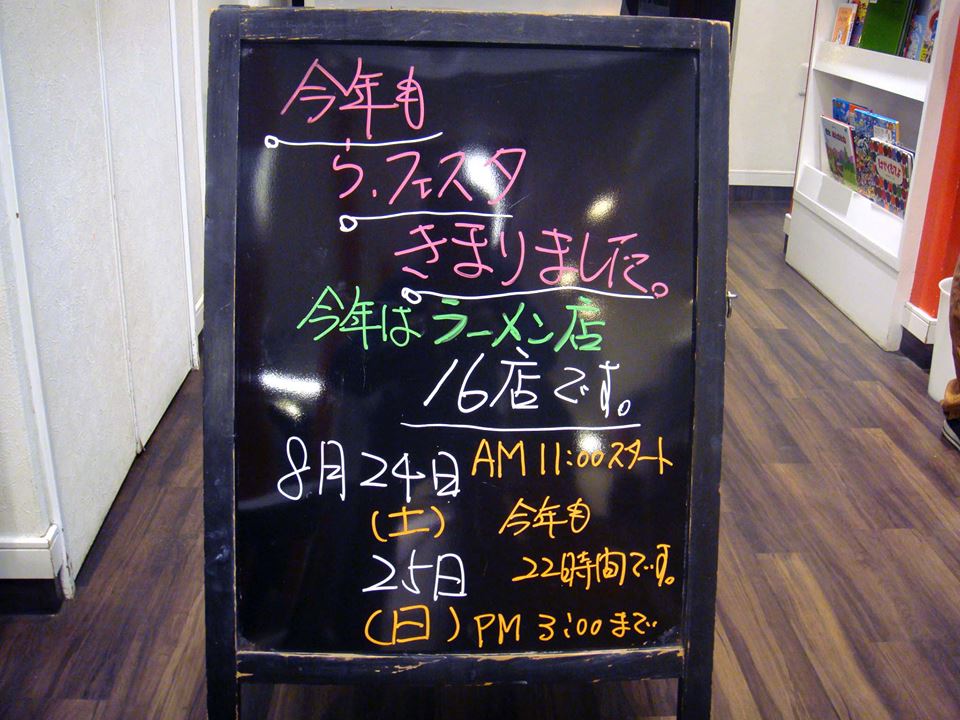 今年も
ら、フェスタ
きまりました。
今年は ラーメン店
16店です。
8月24日 AM 11:00スタート
(土) 今年も
25日 22時間です。
(日) PM 3:00まで